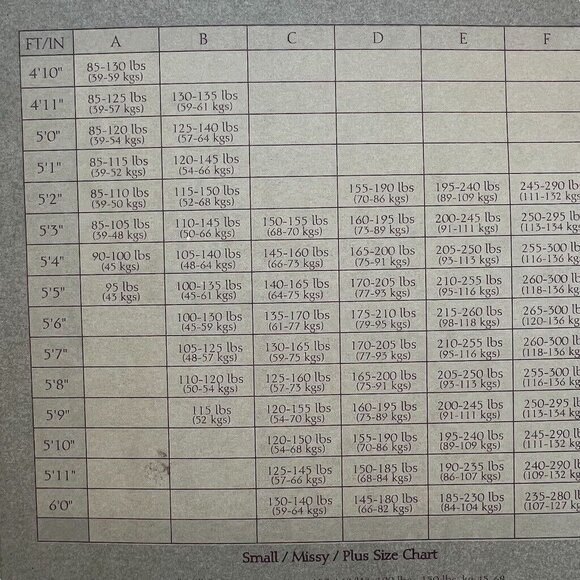 FT/IN A B C D E F
4'10" 85-130 lbs
(39-59 kgs)
4'11" 85-125 lbs 130-135 lbs
(39-57 kgs) (59-61 kgs)
5'0" 85-120 lbs 125-140 lbs
(39-54 kgs) (57-64 kgs)
5'1" 85-115 lbs 120-145 lbs
(39-52 kgs) (54-66 kgs)
5'2" 85-110 lbs 115-150 lbs 155-190 lbs 195-240 lbs 245-290 lb
(39-50 kgs) (52-68 kgs) (70-86 kgs) (89-109 kgs) (111-132 kgs
5'3" 85-105 lbs 110-145 lbs 150-155 lbs 160-195 lbs 200-245 lbs 250-295 lb
(39-48 kgs) (50-66 kgs) (68-70 kgs) (73-89 kgs) (91-111 kgs) (113-134 kgs
5'4" 90-100 lbs 105-140 lbs 145-160 lbs 165-200 lbs 205-250 lbs 255-300 lb
(45 kgs) (48-64 kgs) (66-73 kgs) (75-91 kgs) (93-113 kgs) (116-136 kgs
5'5" 95 lbs 100-135 lbs 140-165 lbs 170-205 lbs 210-255 lbs 260-300 lb
(43 kgs) (45-61 kgs) (64-75 kgs) (77-93 kgs) (95-116 kgs) (118-136 kgs
5'6" 100-130 lbs 135-170 lbs 175-210 lbs 215-260 lbs 265-300 lb
(45-59 kgs) (61-77 kgs) (79-95 kgs) (98-118 kgs) (120-136 kgs
5'7" 105-125 lbs 130-165 lbs 170-205 lbs 210-255 lbs 260-300 lb
(48-57 kgs) (59-75 kgs) (77-93 kgs) (95-116 kgs) (118-136 kgs
5'8" 110-120 lbs 125-160 lbs 165-200 lbs 205-250 lbs 255-300 lb
(50-54 kgs) (57-73 kgs) (75-91 kgs) (93-113 kgs) (116-136 kgs
5'9" 115 lbs 120-155 lbs 160-195 lbs 200-245 lbs 250-295 lb
(52 kgs) (54-70 kgs) (73-89 kgs) (91-111 kgs) (113-134 kgs
5'10" 120-150 lbs 155-190 lbs 195-240 lbs 245-290 lb
(54-68 kgs) (70-86 kgs) (89-109 kgs) (111-132 kgs
5'11" 125-145 lbs 150-185 lbs 190-235 lbs 240-290 lb
(57-66 kgs) (68-84 kgs) (86-107 kgs) (109-132 kgs
6'0" 130-140 lbs 145-180 lbs 185-230 lbs 235-280 lb
(59-64 kgs) (66-82 kgs) (84-104 kgs) (107-127 kgs
Small / Missy / Plus Size Chart